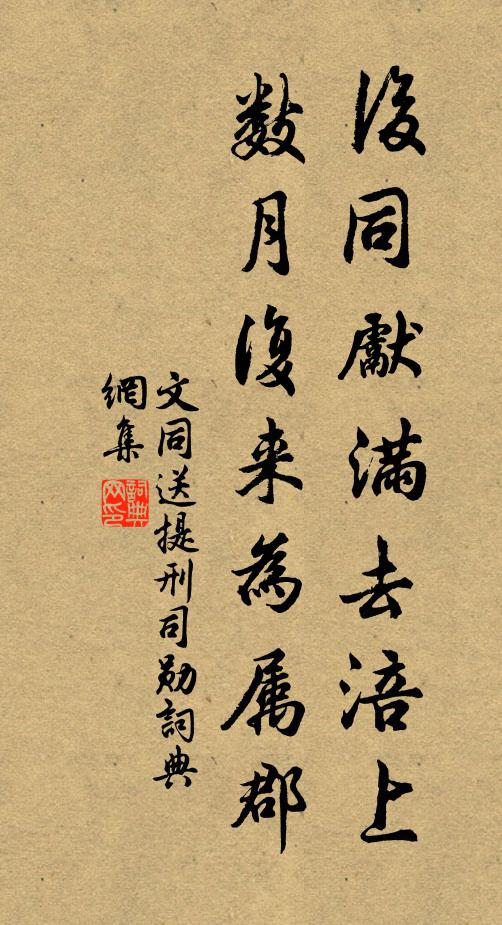 後同獻滿去涪上
數月復来為属郡
文同送提刑司勛詞典
網集
詞典
网印